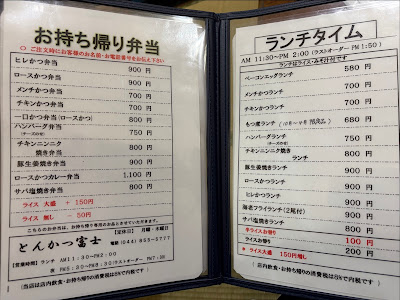 お持ち帰り弁当
○ ご注文時にお客様のお名前・お電話番号をお伝え下さい
ヒレかつ弁当 900 円
ロースかつ弁当 900 円
メンチかつ弁当 700 円
チキンかつ弁当 700 円
一口かつ弁当(ロースかつ) 800 円
ハンバーグ弁当 750 円
(チーズのせ)
チキンニンニク
焼き弁当 800 円
豚生姜焼き弁当 900 円
ロースかつカレー弁当 1,100 円
サバ塩焼き弁当 800 円
ライス 大盛 + 150円
ライス 無し - 50円
こちらのお弁当は、お持ち帰り専用のお品とさせていただきます。
とんかつ富士
【定休日】 月曜・木曜日
電話 (044) 855-5777
【営業時間】 ランチ AM11:30~PM2:00
夜 PM5:30~PM8:30(ラストオーダー PM8:00)
(当店は店内飲食・お持ち帰りの消費税は8%で内税です)
ランチタイム
AM 11:30~PM 2:00 (ラストオーダー PM1:50)
ランチはライス・みそ汁付です
ベーコンエッグランチ 580 円
メンチかつランチ 700 円
チキンかつランチ 700 円
もつ煮ランチ 680 円
ハンバーグランチ 750 円
(チーズのせ)
チキンニンニク焼き
ランチ 800 円
豚生姜焼きランチ 900 円
ロースかつランチ 900 円
ヒレかつランチ 900 円
海老フライランチ(2尾付) 900 円
サバ塩焼きランチ 800 円
半ライスお替り 50 円
ライスお替り 100 円
★ ライス大盛 150円増し 200 円
(店内飲食・お持ち帰りの消費税は8%で内税です)